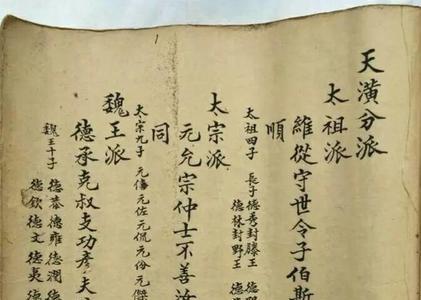 天潢分派
太祖派
維從守世令子伯
順
太祖四子 長子德秀封滕王德
德林封野王德
太宗派
元允宗仲士不善汝
同
太宗九子 元僖元佐元侃元份元傑
魏王派
德承克叔支功彥夫
魏王十子 德恭德雍德潤德
德欽德文德夷德